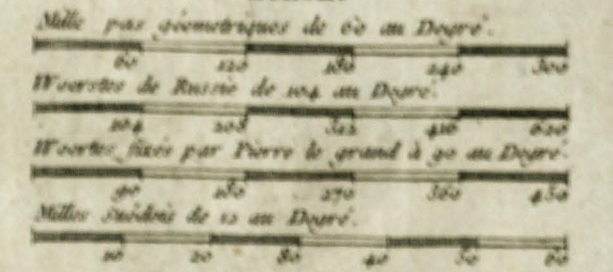 Mille pas géometriques de 60 au Degré.
60 120 180 240 300
Woerstes de Russie de 104 au Degré.
104 208 312 416 520
Woertes fixés par Pierre le grand à 90 au Degré.
90 180 270 360 450
Milles Suédois de 12 au Degré.
10 20 30 40 50 60